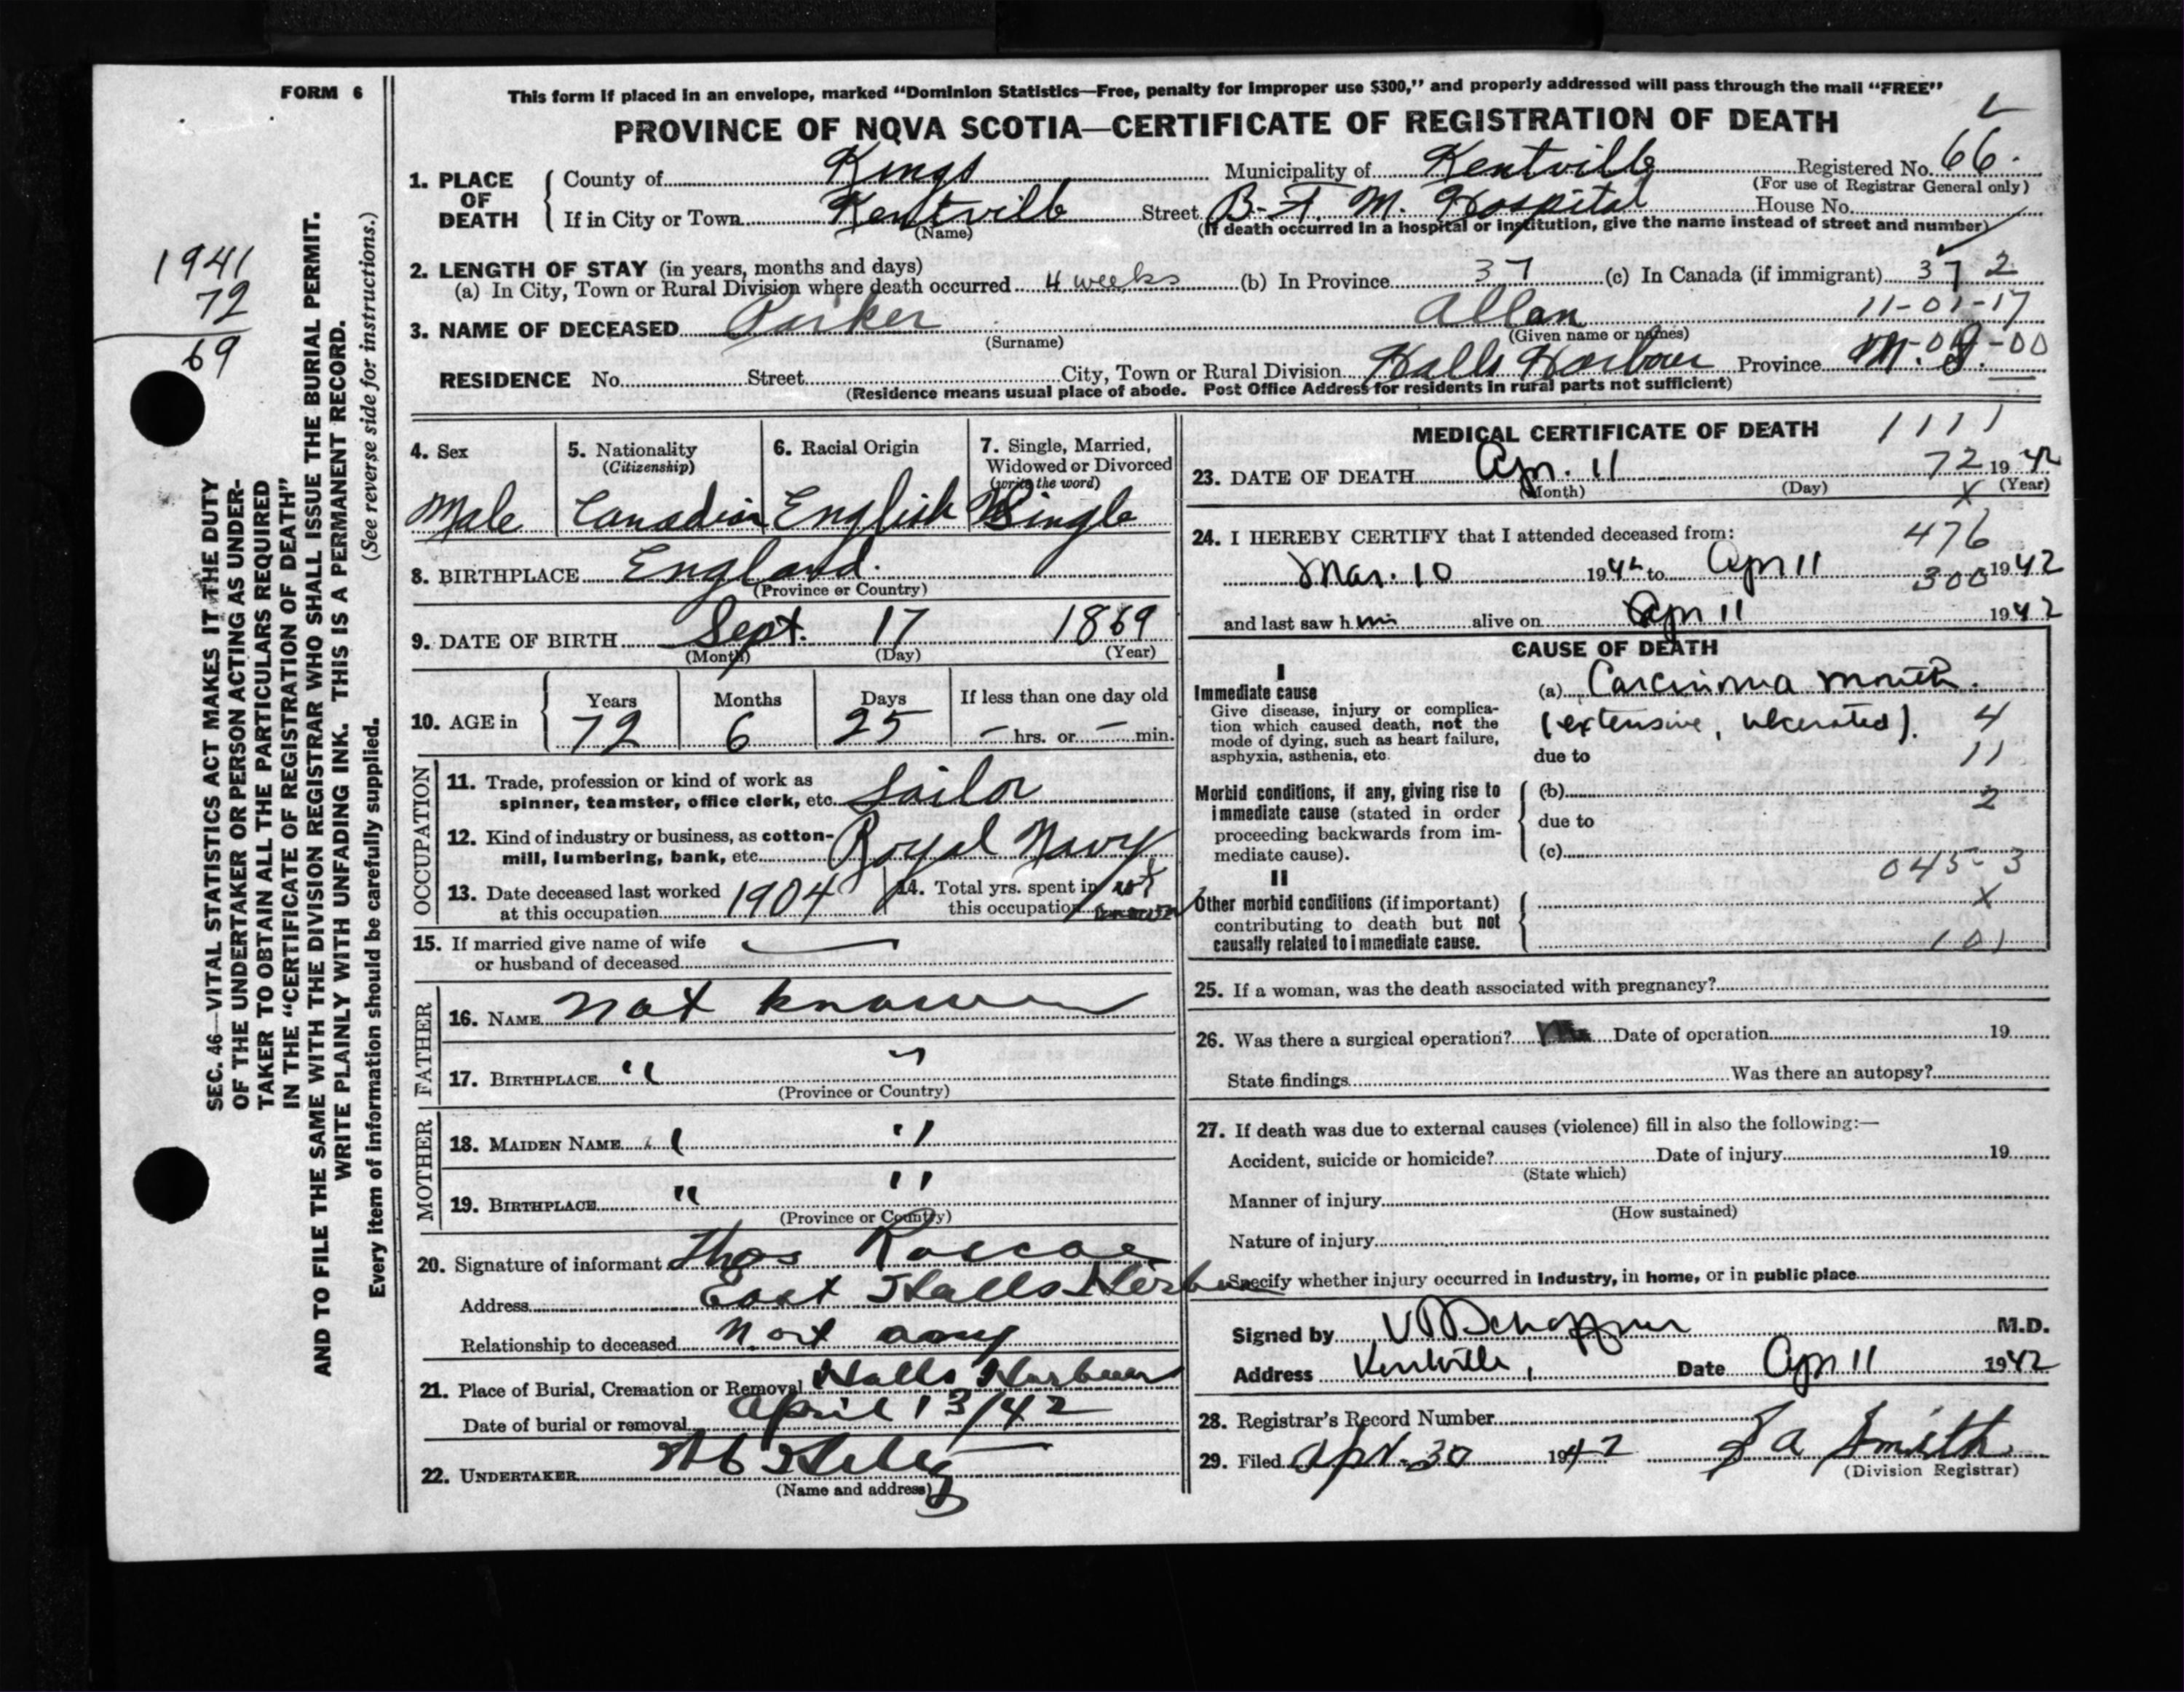 FORM 6
This form if placed in an envelope, marked “Dominion Statistics—Free, penalty for improper use $300,” and properly addressed will pass through the mail “FREE”
PROVINCE OF NOVA SCOTIA—CERTIFICATE OF REGISTRATION OF DEATH
1. PLACE OF DEATH
County of Kings Municipality of Kentville Registered No. 66.
(For use of Registrar General only)
If in City or Town Kentville Street B. F. M. Hospital House No.
(Name) (If death occurred in a hospital or institution, give the name instead of street and number)
2. LENGTH OF STAY (in years, months and days)
(a) In City, Town or Rural Division where death occurred 4 weeks (b) In Province 37 (c) In Canada (if immigrant) 37 2
11-01-17
3. NAME OF DECEASED Parker Allan
(Surname) (Given name or names)
RESIDENCE No. Street City, Town or Rural Division Halls Harbour Province N. S.
(Residence means usual place of abode. Post Office Address for residents in rural parts not sufficient)
1941
72
69
SEC. 46—VITAL STATISTICS ACT MAKES IT THE DUTY
OF THE UNDERTAKER OR PERSON ACTING AS UNDER-
TAKER TO OBTAIN ALL THE PARTICULARS REQUIRED
IN THE “CERTIFICATE OF REGISTRATION OF DEATH”
AND TO FILE THE SAME WITH THE DIVISION REGISTRAR WHO SHALL ISSUE THE BURIAL PERMIT.
WRITE PLAINLY WITH UNFADING INK. THIS IS A PERMANENT RECORD.
Every item of information should be carefully supplied. (See reverse side for instructions.)
4. Sex
Male
5. Nationality
(Citizenship)
Canadian
6. Racial Origin
English
7. Single, Married,
Widowed or Divorced
(write the word)
Single
8. BIRTHPLACE England.
(Province or Country)
9. DATE OF BIRTH Sept. 17 1869
(Month) (Day) (Year)
10. AGE in
Years Months Days If less than one day old
72 6 25 – hrs. or – min.
OCCUPATION
11. Trade, profession or kind of work as
spinner, teamster, office clerk, etc. Sailor
12. Kind of industry or business, as cotton-
mill, lumbering, bank, etc. Royal Navy
13. Date deceased last worked
at this occupation 1904
14. Total yrs. spent in
this occupation not
15. If married give name of wife
or husband of deceased —
FATHER
16. NAME not known
17. BIRTHPLACE " "
(Province or Country)
MOTHER
18. MAIDEN NAME " "
19. BIRTHPLACE " "
(Province or Country)
20. Signature of informant Thos Roscoe
Address East Halls Harbour
Relationship to deceased Not any
21. Place of Burial, Cremation or Removal Halls Harbour
Date of burial or removal April 13/42
22. UNDERTAKER
(Name and address)
MEDICAL CERTIFICATE OF DEATH 1111
23. DATE OF DEATH Apr. 11 72 1942
(Month) (Day) (Year)
X
24. I HEREBY CERTIFY that I attended deceased from: 476
Mar. 10 1942 to Apr 11 300 1942
and last saw h im alive on Apr 11 1942
CAUSE OF DEATH
I
Immediate cause
Give disease, injury or complica-
tion which caused death, not the
mode of dying, such as heart failure,
asphyxia, asthenia, etc.
(a) Carcinoma mouth.
(extensive, ulcerated). 4
due to 11
Morbid conditions, if any, giving rise to
immediate cause (stated in order
proceeding backwards from im-
mediate cause).
(b) 2
due to
(c)
045-3
II
Other morbid conditions (if important)
contributing to death but not
causally related to immediate cause.
X
101
25. If a woman, was the death associated with pregnancy?
26. Was there a surgical operation? No Date of operation 19
State findings Was there an autopsy?
27. If death was due to external causes (violence) fill in also the following:—
Accident, suicide or homicide? Date of injury 19
(State which)
Manner of injury
(How sustained)
Nature of injury
Specify whether injury occurred in Industry, in home, or in public place
Signed by V D Schaffner M.D.
Address Kentville, Date Apr 11 1942
28. Registrar's Record Number
29. Filed Apr. 30 1942 S A Smith
(Division Registrar)